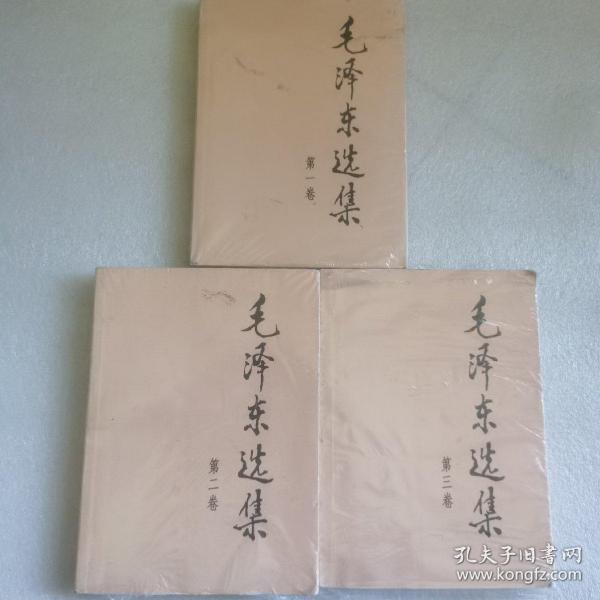 毛泽东选集
第一卷
毛泽东选集
第二卷
毛泽东选集
第三卷
孔夫子旧书网
www.kongfz.com